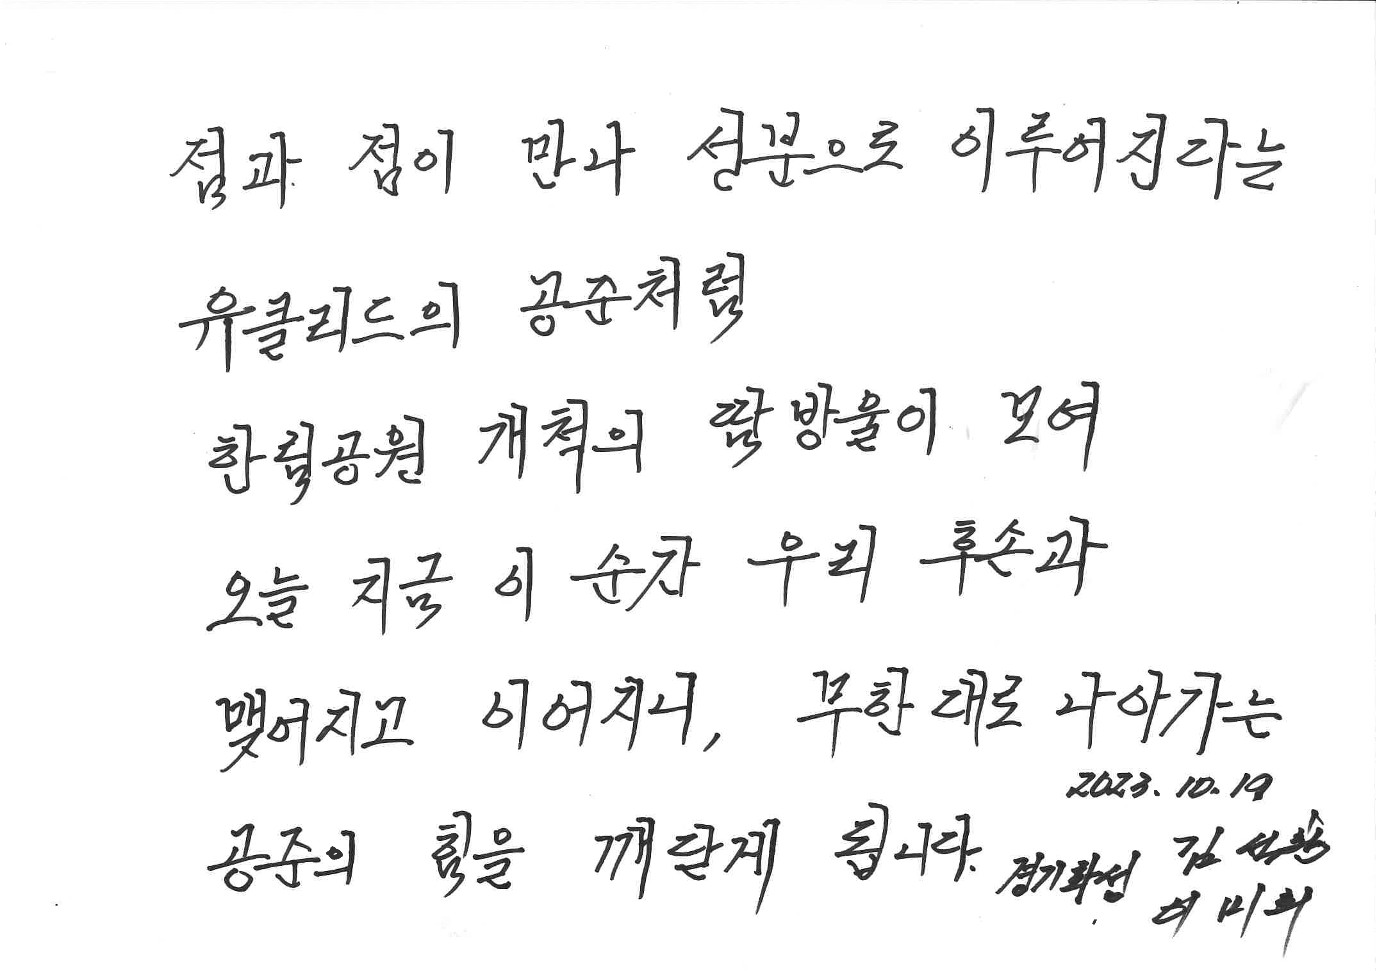 점과 점이 만나 성분으로 이루어진다는
유클리드의 공준처럼
한림공원 개척의 땀방울이 모여
오늘 지금 이 순간 우리 후손과
맺어지고 이어지니, 무한대로 나아가는
2023. 10. 19
공준의 힘을 깨닫게 됩니다.
경기화성 김
미희